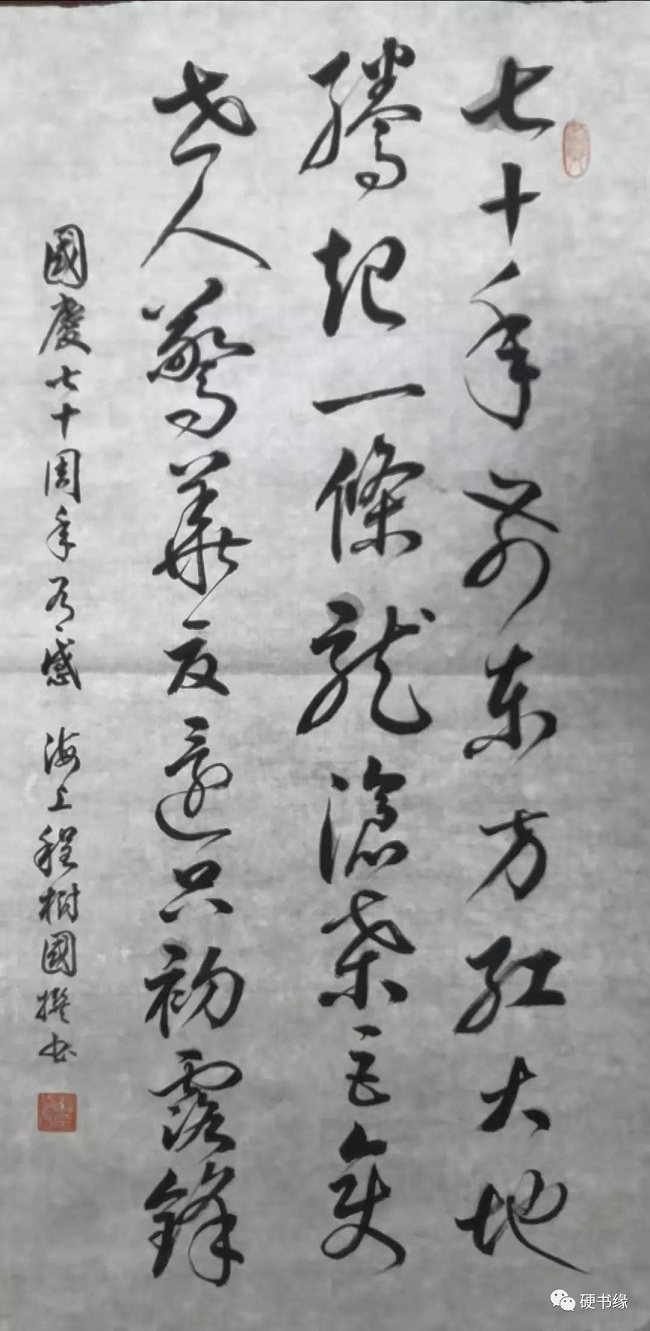 七十年前東方紅大地
騰起一條龍滄桑巨變
世人驚華夏還只初露鋒
國慶七十周年有感 海上程樹國撰书
硬书缘